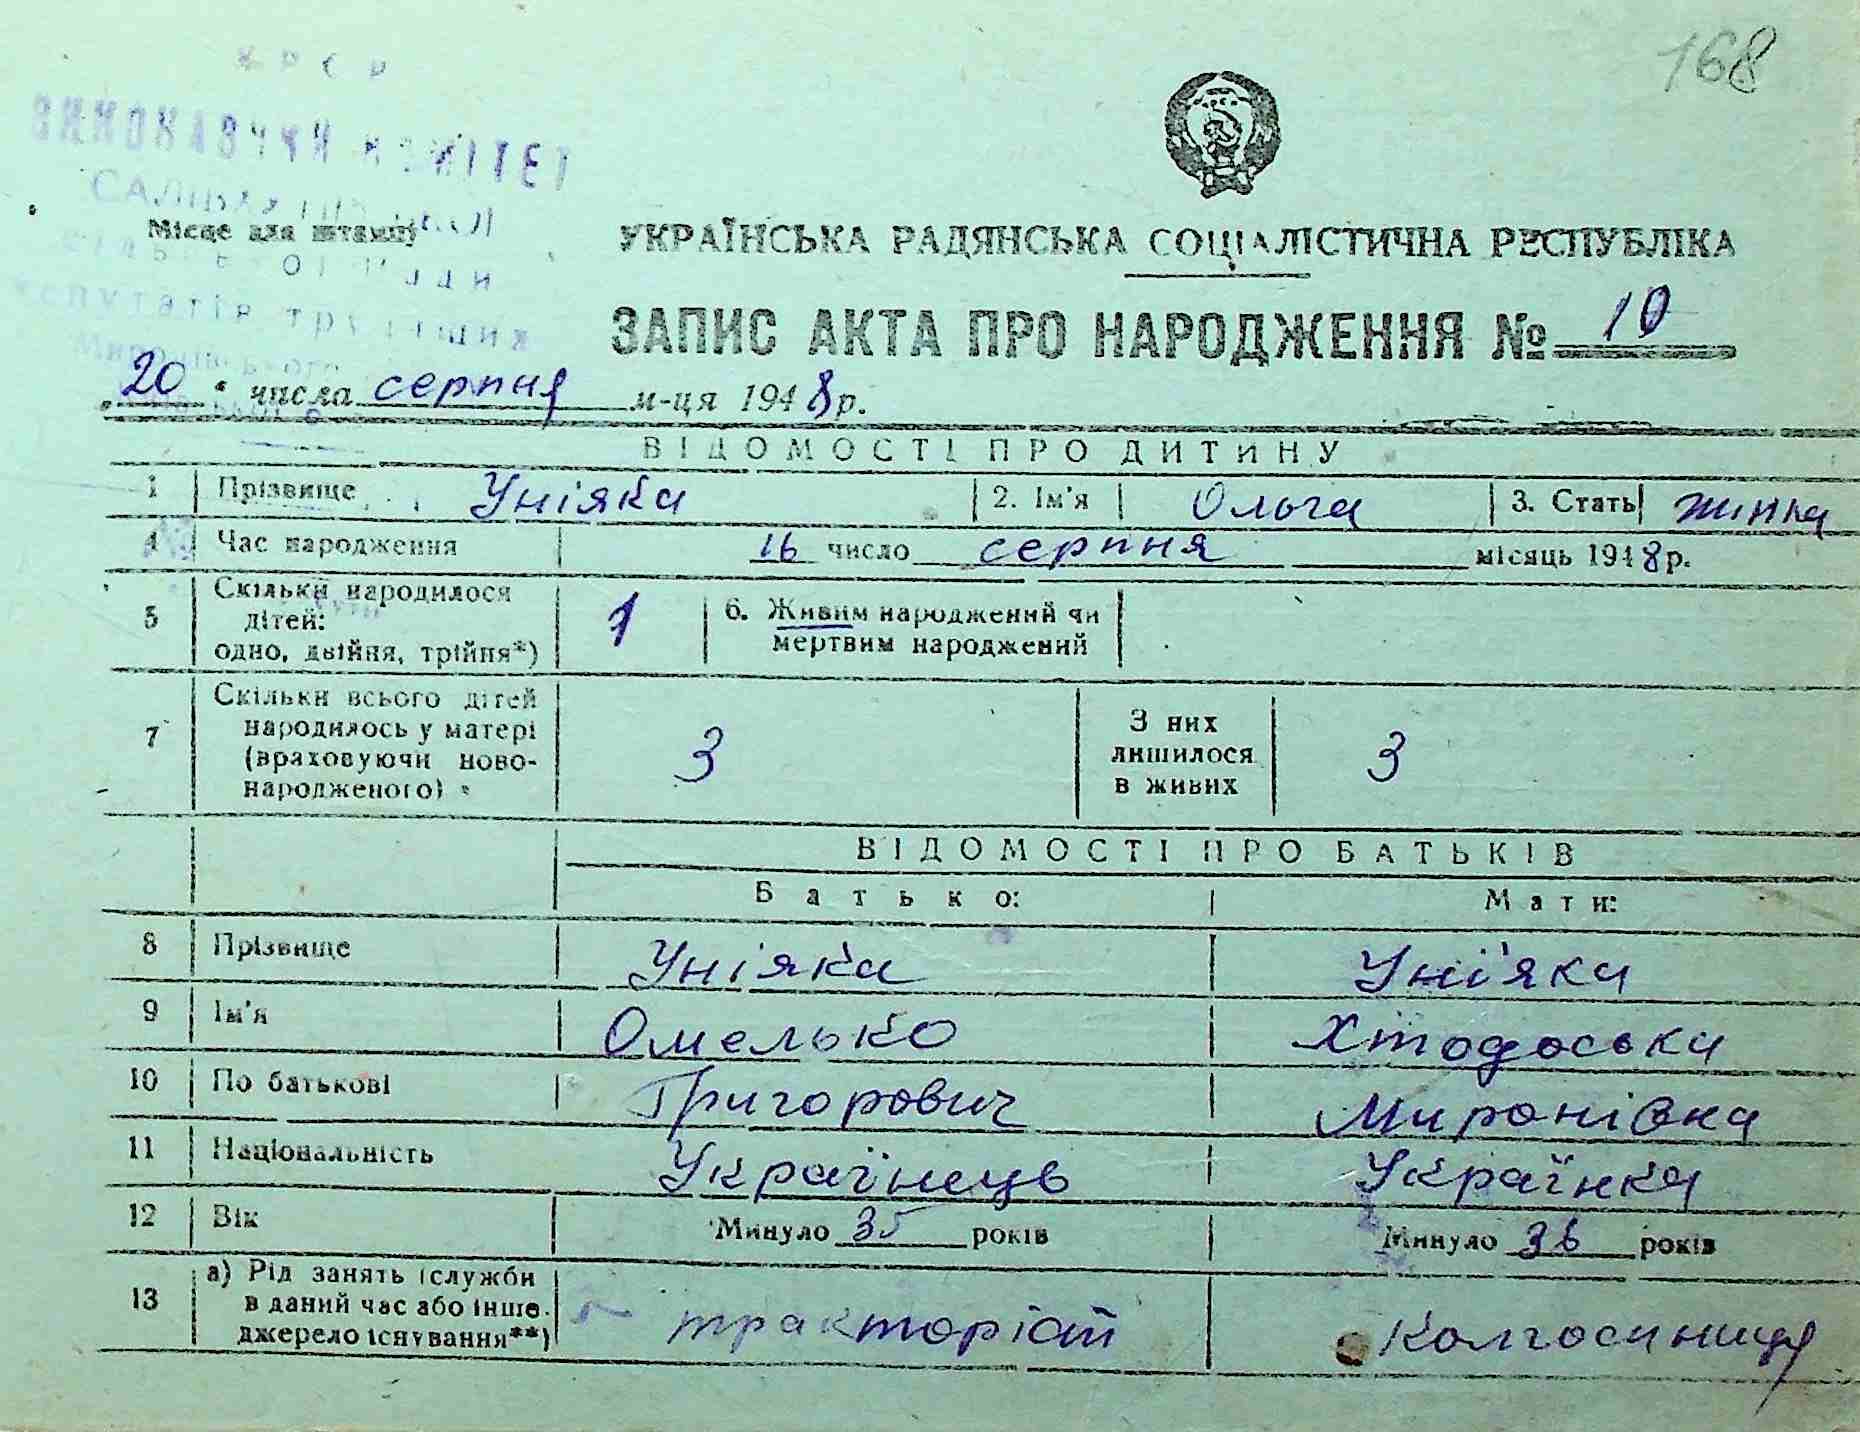 168
УРСР
ВИКОНАВЧИЙ КОМІТЕТ
Місце для штампу
УКРАЇНСЬКА РАДЯНСЬКА СОЦІАЛІСТИЧНА РЕСПУБЛІКА
ЗАПИС АКТА ПРО НАРОДЖЕННЯ № 10
„20“ числа серпня м-ця 1948 р.
ВІДОМОСТІ ПРО ДИТИНУ
1 Прізвище Уніяка 2. Ім'я Ольга 3. Стать жінка
4 Час народження 16 число серпня місяць 1948 р.
5 Скільки народилося дітей: одно, двійня, трійня*) 1 6. Живим народжений чи мертвим народжений
7 Скільки всього дітей народилось у матері (враховуючи ново-народженого) 3 З них лишилося в живих 3
ВІДОМОСТІ ПРО БАТЬКІВ
Батько: Мати:
8 Прізвище Уніяка Уні'яка
9 Ім'я Омелько Хтодоська
10 По батькові Григорович Миронівна
11 Національність Українець Українка
12 Вік Минуло 35 років Минуло 36 років
13 а) Рід занять (служби в даний час або інше джерело існування**) тракторіст Колгоспниця